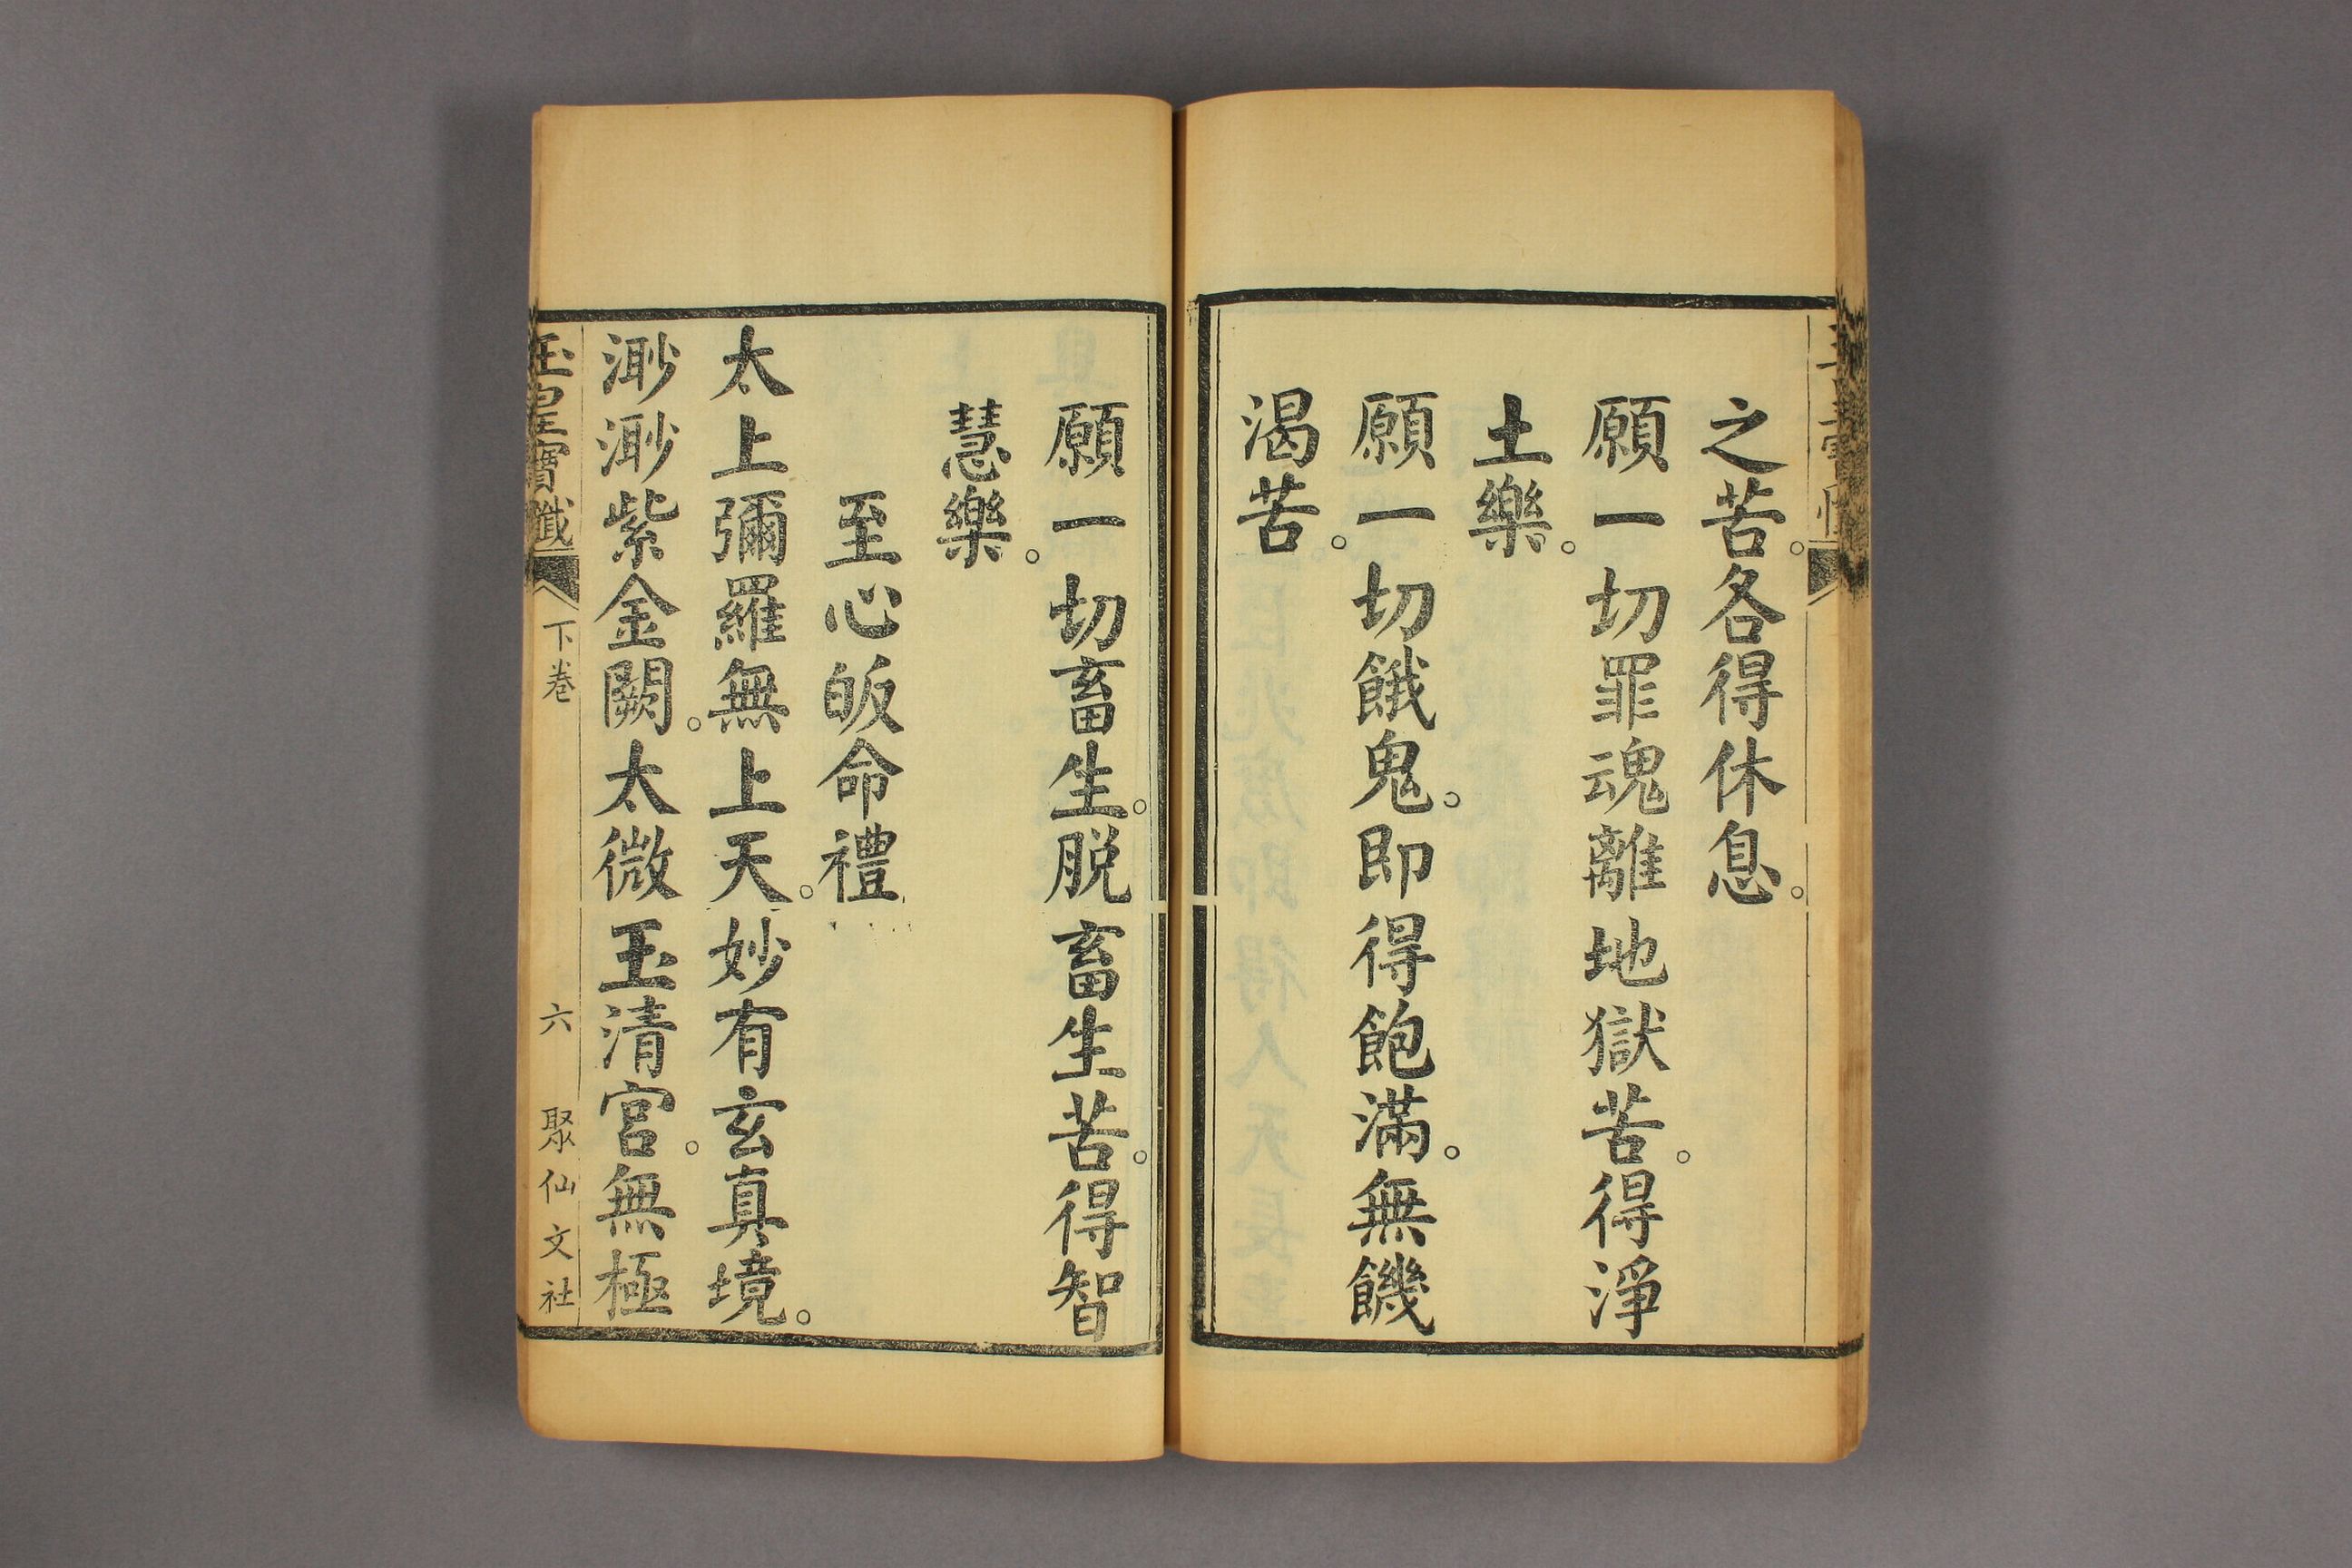 之苦。各得休息。
願一切罪魂離地獄苦。得淨
土樂。
願一切餓鬼。即得飽滿。無饑
渴苦。
願一切畜生。脱畜生苦。得智
慧樂。
至心皈命禮
太上彌羅無上天。妙有玄真境。
渺渺紫金闕。太微玉清宮。無極
玉皇寶懺 下卷 六 聚仙文社